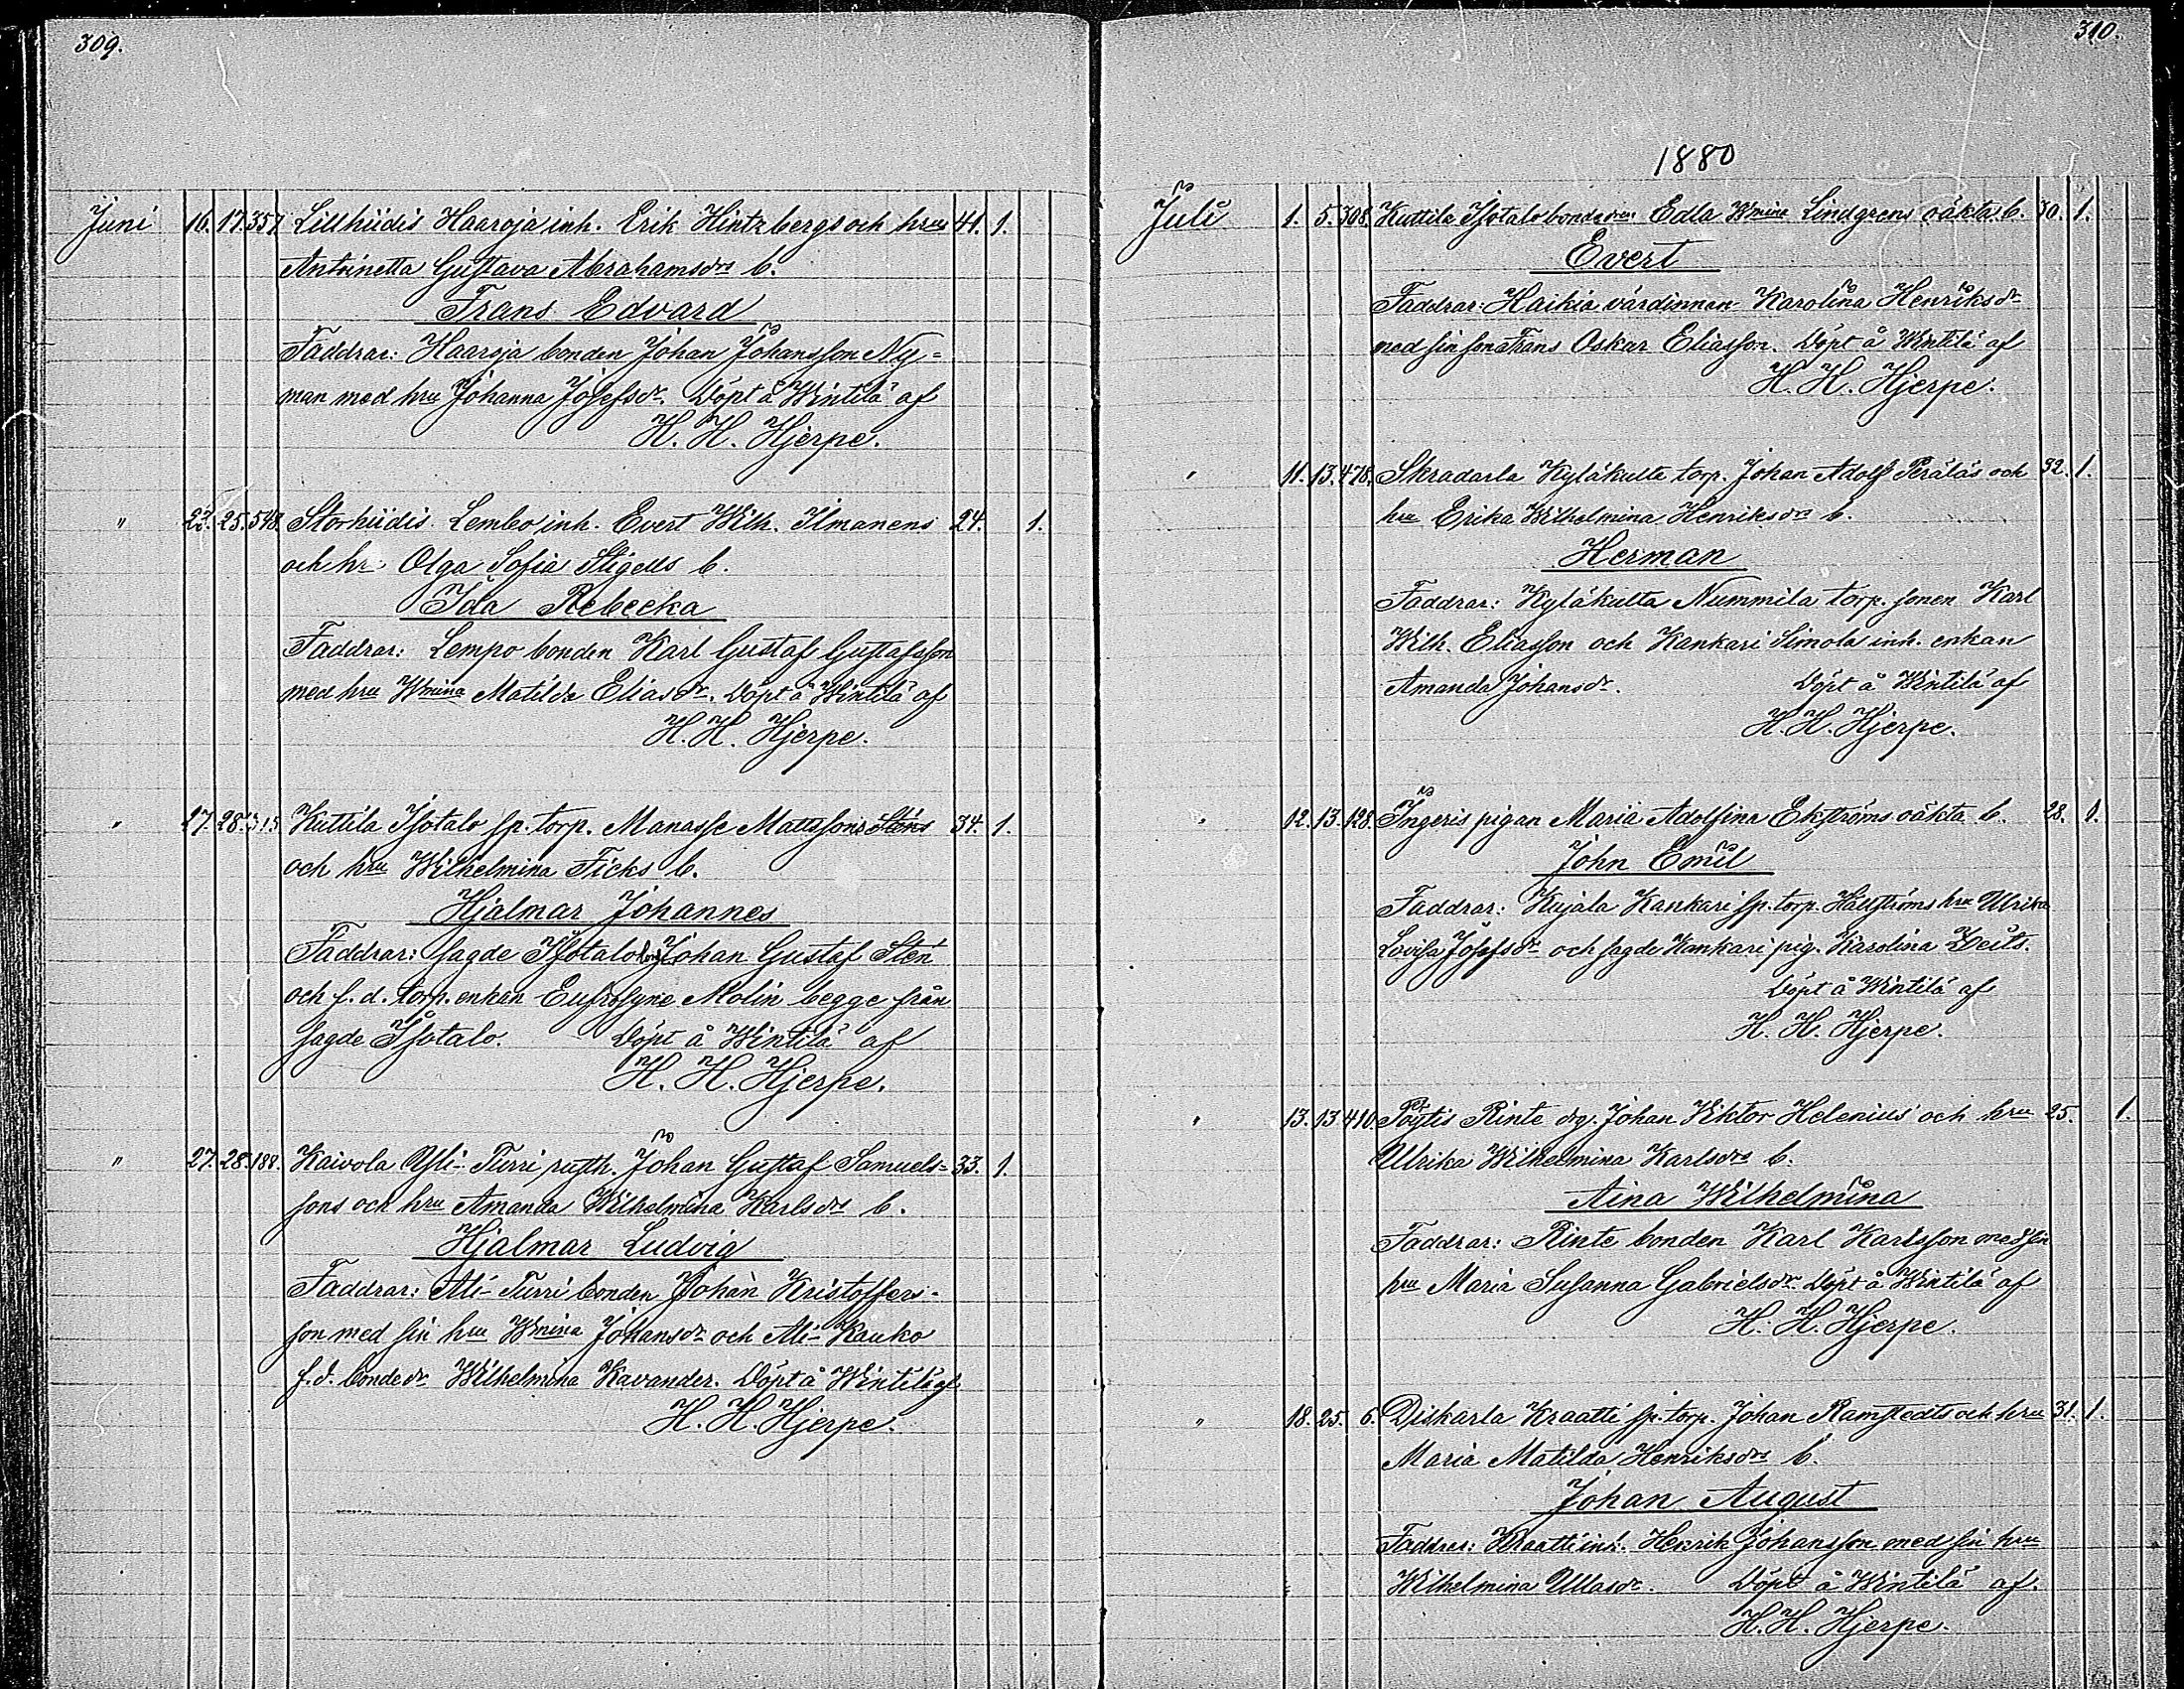 309.
Juni 16. 17. 357 Lillhiidis Haaroja inh. Erik Hintzbergs och hrus 41. 1.
Antoinetta Gustava Abrahamsdrs b.
Frans Edvard
Faddrar: Haaroja bonden Johan Johansson Ny=
man med hru Johanna Josefsdr. Döpt å Wintilä af
H. H. Hjerpe.
" 22. 25. 548. Storhiidis Lembo inh. Evert Wilh. Ilmanens 24. 1.
och hr. Olga Sofia Stigells b.
Ida Rebecka
Faddrar: Lempo bonden Karl Gustaf Gustafsson
med hru Wmina Matilda Eliasdr. Döpt å Wintilä af
H. H. Hjerpe.
" 27. 28. 313. Kuttila Isotalo sp. torp. Manasse Mattssons Stens 34. 1.
och hru Wilhelmina Ficks b.
Hjalmar Johannes
Faddrar: sagde Isotalo Johan Gustaf Sten
och f. d. torp. enkan Eufrosyne Molin begge från
sagde Isotalo. Döpt å Wintilä af
H. H. Hjerpe.
" 27. 28. 188. Kaivola Yli-Turri rusth. Johan Gustaf Samuels= 33. 1.
sons och hru Amanda Wilhelmina Karlsdrs b.
Hjalmar Ludvig
Faddrar: Ali-Turri bonden Johan Kristoffers-
son med sin hru Wmina Johansdr och Ali-Kauko
f.d. bondedr Wilhelmina Kavander. Döpt å Wintilä af
H. H. Hjerpe.
310.
1880
Juli 1. 5. 308. Kuttila Isotalo bondedrs Edla Wmina Lindgrens oäkta b. 30. 1.
Evert
Faddrar: Haikia värdinnan Karolina Henriksdr
med sin son Frans Oskar Eliasson. Döpt å Wintilä af
H. H. Hjerpe.
" 11. 13. 478. Skradarla Kyläkulta torp. Johan Adolf Peräläs och 32. 1.
hru Erika Wilhelmina Henriksdrs b.
Herman
Faddrar: Kyläkulta Nummila torp. sonen Karl
Wilh. Eliasson och Kankari Simola inh. enkan
Amanda Johansdr. Döpt å Wintilä af
H. H. Hjerpe.
" 12. 13. 128. Ingeris pigan Maria Adolfina Ekströms oäkta b. 28. 1.
John Emil
Faddrar: Kujala Kankari sp. torp. Hallströms hru Ulrika
Lovisa Josefsdr och sagde Kankari pig. Karolina Deits.
Döpt å Wintilä af
H. H. Hjerpe.
" 13. 13 410. Pöytis Rinte drg. Johan Viktor Helenius och hru 25. 1.
Ulrika Wilhelmina Karlsdrs b.
Aina Wilhelmina
Faddrar: Rinte bonden Karl Karlsson med sin
hru Maria Susanna Gabrielsdr. Döpt å Wintilä af
H. H. Hjerpe.
" 18. 25. 6. Diskarla Kraatti sp. torp. Johan Ramstedts och hru 31. 1.
Maria Matilda Henriksdrs b.
Johan August
Faddrar: Kraatti inh. Henrik Johansson med sin hru
Wilhelmina Ullasdr. Döpt å Wintilä af.
H. H. Hjerpe.